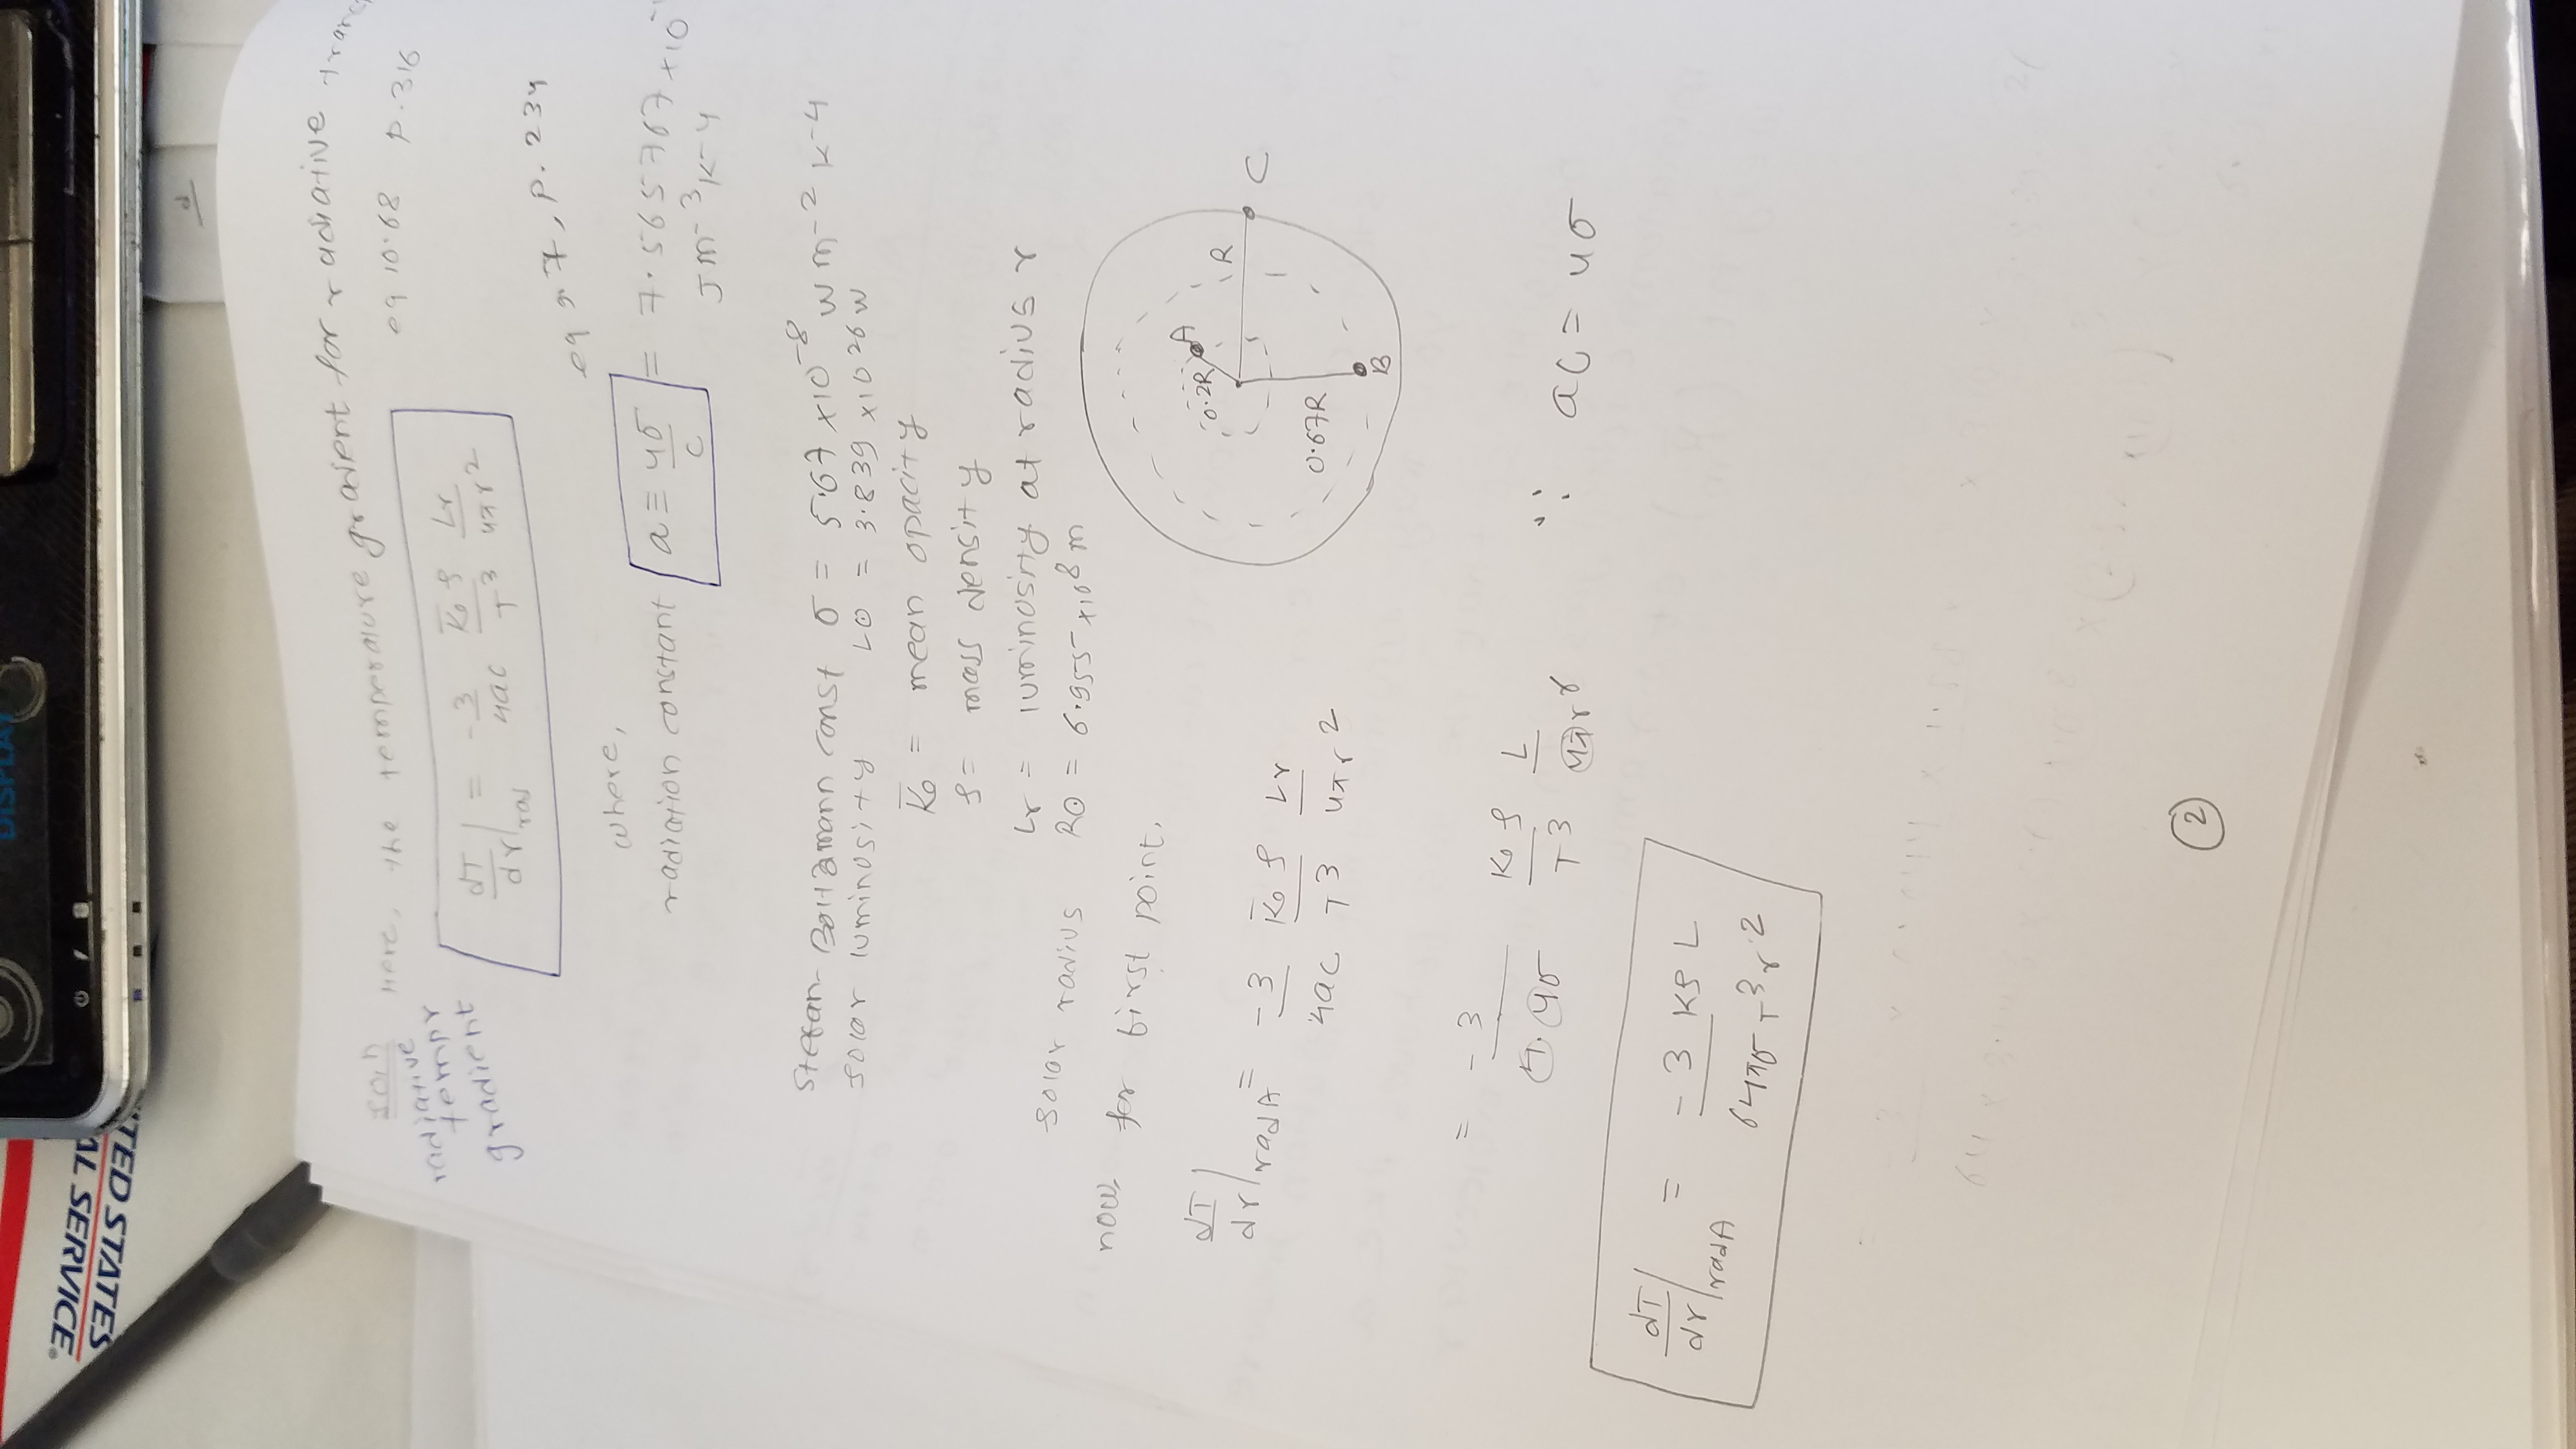 DISPLAY
UNITED STATES
AL SERVICE®
d
soln Here, the temperature gradient for radiative
eq 10.68 p.316
radiative
tempr
gradient
dT/dr|rad = -3/4ac K̄oρ/T^3 Lr/4πr^2
where,
eq 9.7, p. 234
radiation constant a ≡ 4σ/c = 7.565767 × 10^-
J m^-3 K^-4
Stefan-Boltzmann const σ = 5.67 × 10^-8 W m^-2 K^-4
solar luminosity L⊙ = 3.839 × 10^26 W
K̄o = mean opacity
ρ = mass density
Lr = luminosity at radius r
solar radius R⊙ = 6.955 × 10^8 m
now, for first point,
dT/dr|rad A = -3/4ac K̄oρ/T^3 Lr/4πr^2
0.2R A
R C
0.67R
B
= -3/4.4σ Koρ/T^3 L/4πr^2 ∵ ac = 4σ
dT/dr|rad A = -3 KρL/64πσT^3r^2
2